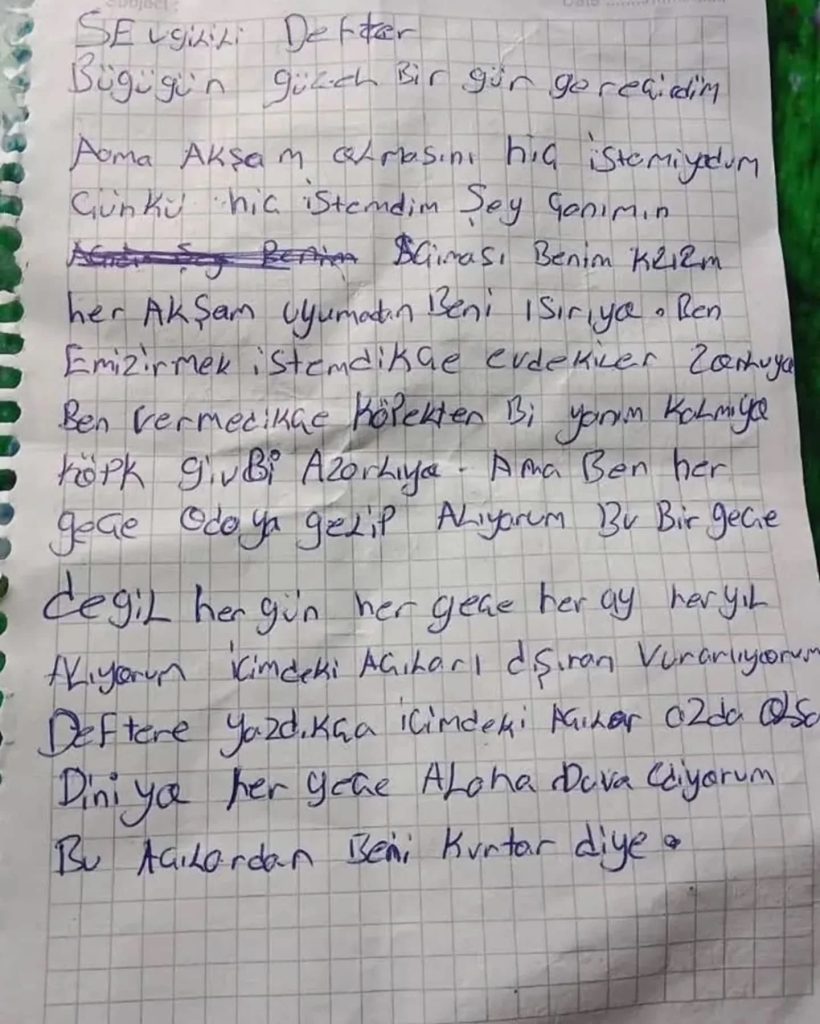 SEvgiLiLi Defter
Bügügün güzeh Bir gün gereçirdim
Aama AKŞam oLmasını hiç istemiyodum
Çünkü hiç istemdim Şey Ganımın
Açıması Benim Kızım
her AKŞam uyumadan Beni ısırıya. Ben
Emizirmek istemdikçe evdekiler Zorluya
Ben vermedikçe Köpekten Bi yanım Kalmıya
Köpk givBi Azarlıya. Ama Ben her
geçe Odaya geLip ALıyorum Bu Bir geçe
degiL her gün her geçe her ay her yıL
ALıyorum içimdeki Açıları dışıran Vurarlıyorum
Deftere yazdıkça içimdeki Açılar azda OLsa
Diniya her geçe ALaha Duva Ediyorum
Bu Açılardan Beni Kurtar diye.